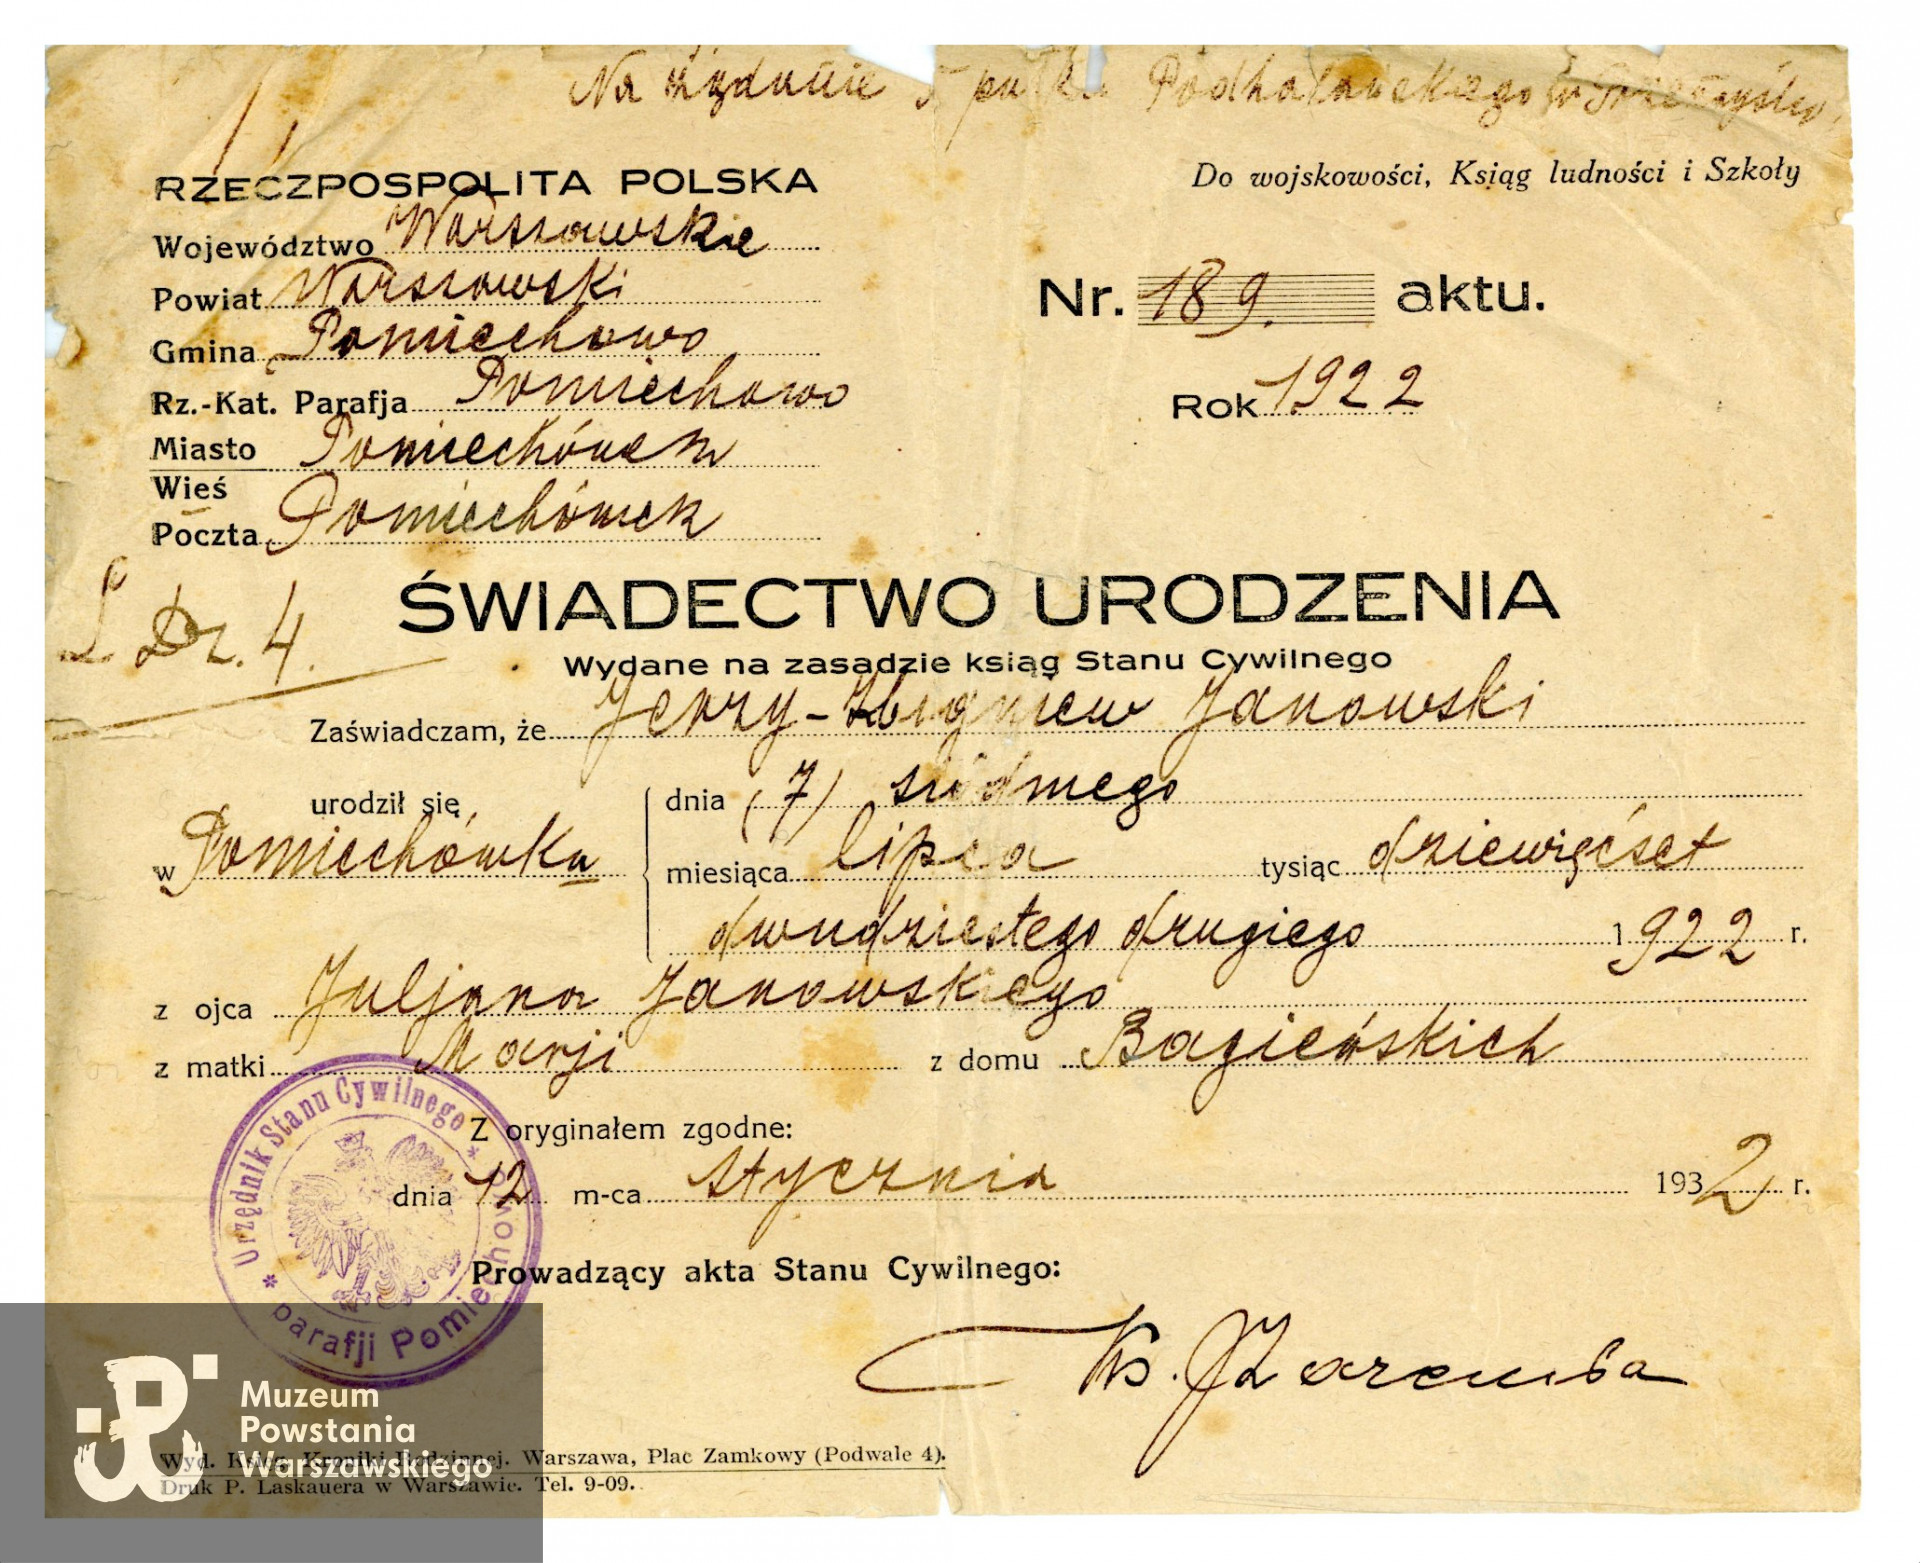 Na żądanie 5 pułku Podhalańskiego w Przemyślu.
RZECZPOSPOLITA POLSKA
Do wojskowości, Ksiąg ludności i Szkoły
Województwo Warszawskie
Powiat Warszawski
Nr. 189. aktu.
Gmina Pomiechowo
Rz.-Kat. Parafja Pomiechowo
Rok 1922
Miasto Pomiechówek
Wieś
Poczta Pomiechówek
L Dz. 4.
ŚWIADECTWO URODZENIA
Wydane na zasadzie ksiąg Stanu Cywilnego
Zaświadczam, że Jerzy-Zbigniew Janowski
urodził się
dnia (7) siódmego
w Pomiechówku
miesiąca lipca tysiąc dziewięćset
dwudziestego drugiego 1922 r.
z ojca Juljana Janowskiego
z matki Marji z domu Bagieńskich
Z oryginałem zgodne:
dnia 12 m-ca stycznia 1932 r.
Prowadzący akta Stanu Cywilnego:
Ks. J Zaremba
Urzędnik Stanu Cywilnego
* parafji Pomiechowo *
Muzeum
Powstania
Warszawskiego
Wyd. Ksiąg Kroniki Rodzinnej. Warszawa, Plac Zamkowy (Podwale 4).
Druk P. Laskauera w Warszawie. Tel. 9-09.